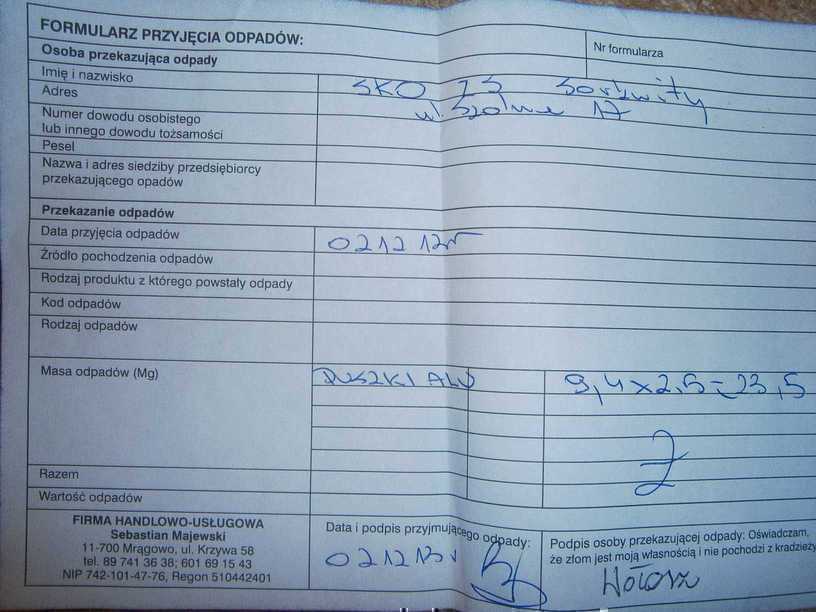 FORMULARZ PRZYJĘCIA ODPADÓW:
Nr formularza
Osoba przekazująca odpady
Imię i nazwisko SKO ZS Sorkwity
Adres ul. Szolna 17
Numer dowodu osobistego
lub innego dowodu tożsamości
Pesel
Nazwa i adres siedziby przedsiębiorcy
przekazującego opadów
Przekazanie odpadów
Data przyjęcia odpadów 021212r
Źródło pochodzenia odpadów
Rodzaj produktu z którego powstały odpady
Kod odpadów
Rodzaj odpadów
Masa odpadów (Mg) PUSZKI ALU 9,4x2,5=23,5
Razem
Wartość odpadów
FIRMA HANDLOWO-USŁUGOWA
Sebastian Majewski
11-700 Mrągowo, ul. Krzywa 58
tel. 89 741 36 38; 601 69 15 43
NIP 742-101-47-76, Regon 510442401
Data i podpis przyjmującego odpady:
021213r
Podpis osoby przekazującej odpady: Oświadczam,
że złom jest moją własnością i nie pochodzi z kradzieży